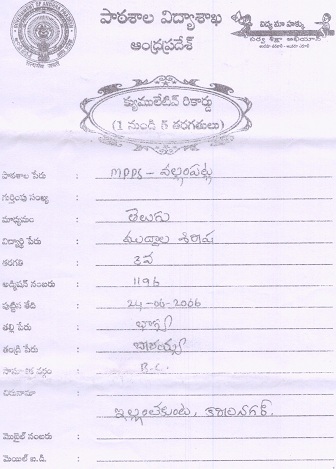 పాఠశాల విద్యాశాఖ
ఆంధ్రప్రదేశ్
విద్య మా హక్కు
సర్వ శిక్షా అభియాన్
క్యుములేటివ్ రికార్డు
(1 నుండి 5 తరగతులు)
పాఠశాల పేరు : MPPS - వల్లంపట్ల
గుర్తింపు సంఖ్య :
మాధ్యమం : తెలుగు
విద్యార్థి పేరు : ముద్దాల శిరీష
తరగతి : 3వ
అడ్మిషన్ నంబరు : 1196
పుట్టిన తేది : 24-06-2006
తల్లి పేరు : భాగ్య
తండ్రి పేరు : బాలయ్య
సామాజిక వర్గం : B.C.
చిరునామా :
ఇల్లంతకుంట, కరీంనగర్.
మొబైల్ నంబరు :
మెయిల్ ఐ.డి. :